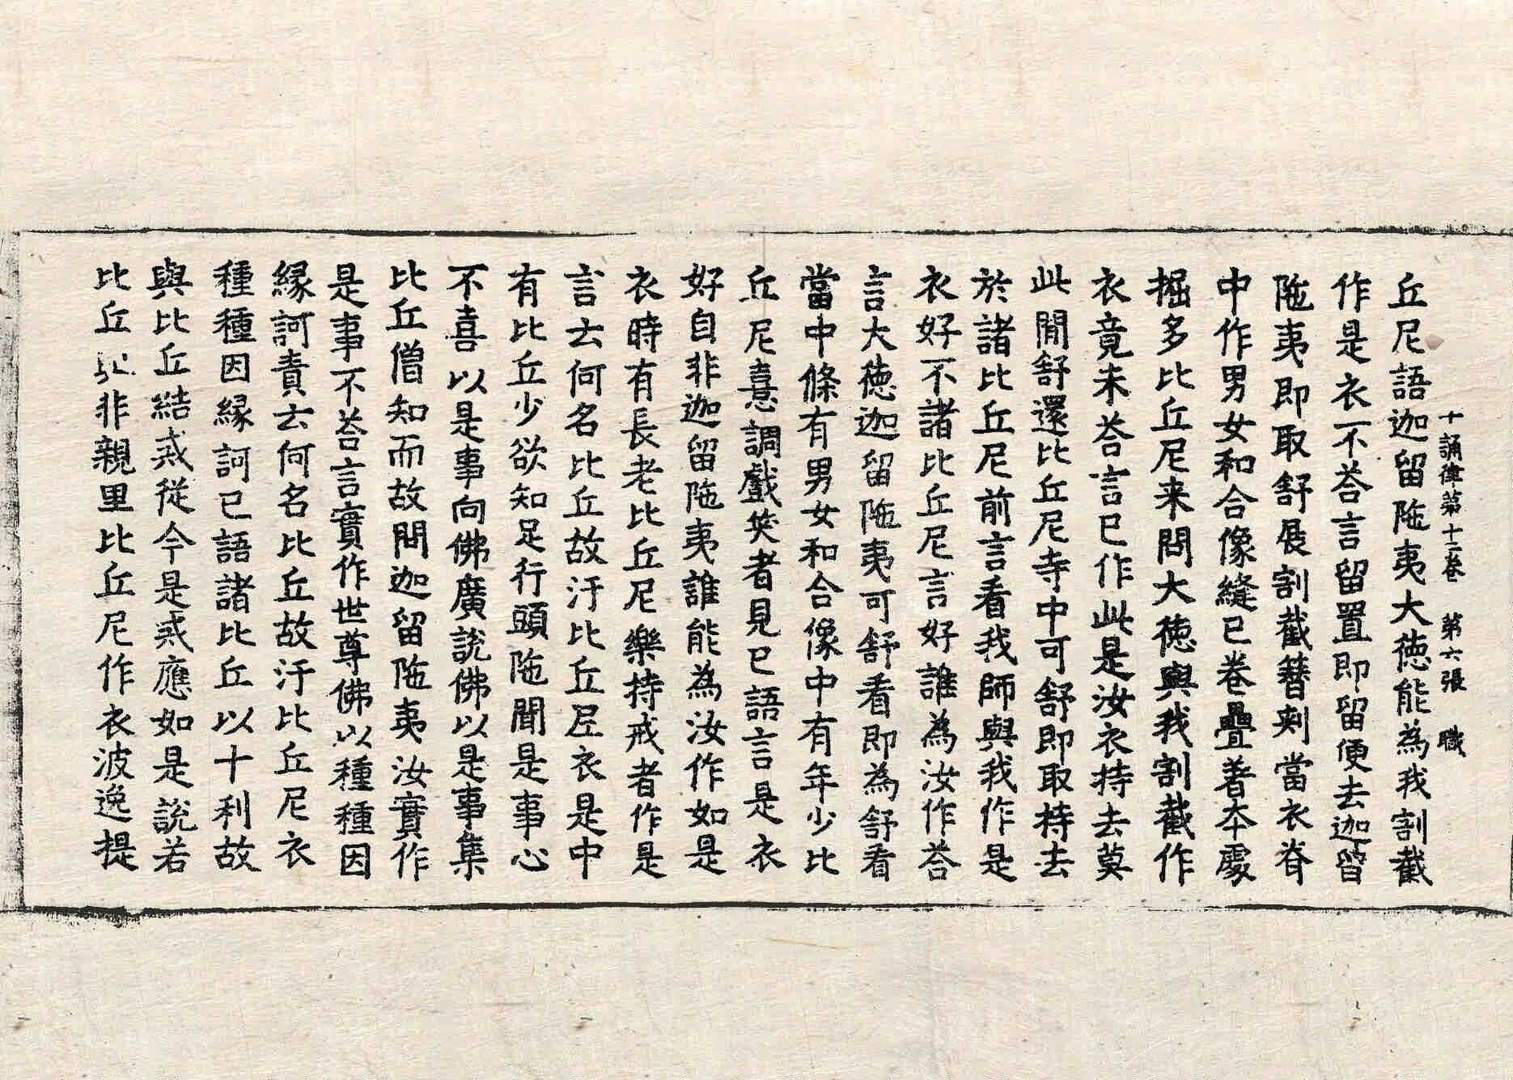 十誦律第十二卷　第六張　職
丘尼語迦留陁夷大徳能為我割截
作是衣不荅言留置即留便去迦留
陁夷即取舒展割截簪刺當衣脊
中作男女和合像縫已卷疊著本處
掘多比丘尼来問大徳與我割截作
衣竟未荅言已作此是汝衣持去莫
此閒舒還比丘尼寺中可舒即取持去
於諸比丘尼前言看我師與我作是
衣好不諸比丘尼言好誰為汝作荅
言大徳迦留陁夷可舒看即為舒看
當中條有男女和合像中有年少比
丘尼憙調戲笑者見已語言是衣
好自非迦留陁夷誰能為汝作如是
衣時有長老比丘尼樂持戒者作是
言云何名比丘故汙比丘尼衣是中
有比丘少欲知足行頭陁聞是事心
不喜以是事向佛廣說佛以是事集
比丘僧知而故問迦留陁夷汝實作
是事不荅言實作世尊佛以種種因
緣訶責云何名比丘故汙比丘尼衣
種種因緣訶已語諸比丘以十利故
與比丘結戒從今是戒應如是說若
比丘與非親里比丘尼作衣波逸提